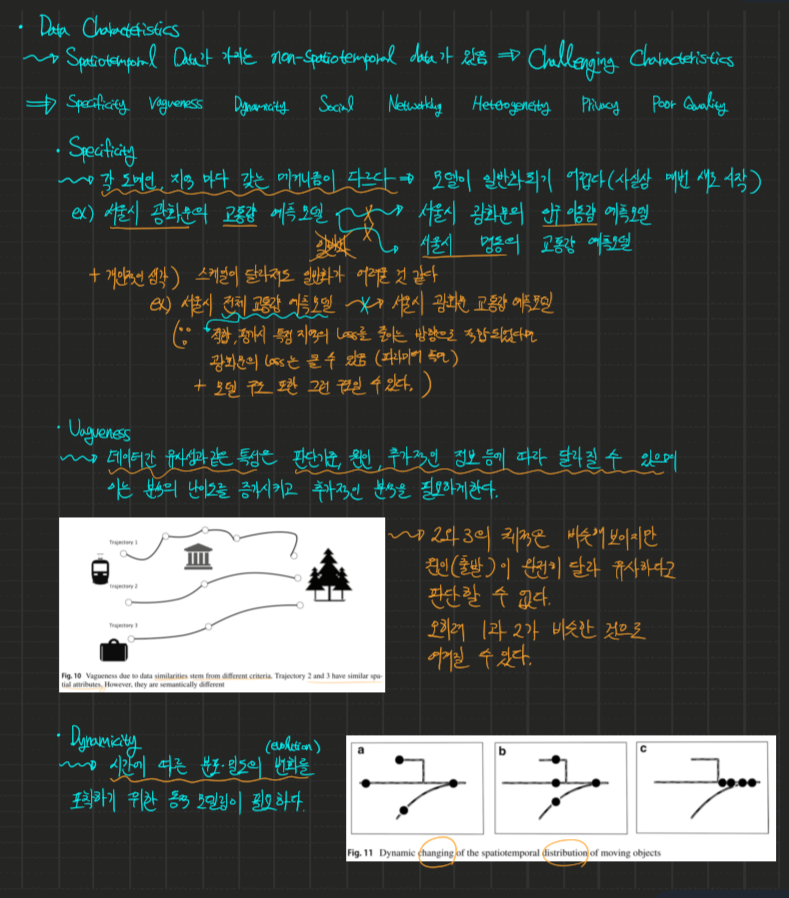 · Data Characteristics
Spatiotemporal Data가 가지는 non-spatiotemporal data가 있음 ⇒ Challenging Characteristics
⇒ Specificity Vagueness Dynamicity Social Networking Heterogeneity Privacy Poor Quality
· Specificity
각 도메인, 지역 마다 갖는 메커니즘이 다르다 ⇒ 모델이 일반화되기 어렵다 (사실상 매번 새로 시작)
ex) 서울시 광화문의 교통량 예측모델 서울시 광화문의 인구 이동량 예측모델
일반화 서울시 명동의 교통량 예측모델
+ 개인적인 생각) 스케일이 달라져도 일반화가 어려운 것 같다
ex) 서울시 전체 교통량 예측모델 서울시 광화문 교통량 예측모델
(∵ 적합, 평가시 특정 지역의 Loss를 줄이는 방향으로 적합 되었다면
광화문의 Loss는 클 수 있음 (파라미터 측면)
+ 모델 구조 또한 그런 편일 수 있다.)
· Vagueness
데이터간 유사성과 같은 특성은 판단기준, 원인, 추가적인 정보 등에 따라 달라질 수 있으며
이는 분석의 난이도를 증가시키고 추가적인 분석을 필요하게한다.
Trajectory 1
Trajectory 2
Trajectory 3
Fig. 10 Vagueness due to data similarities stem from different criteria. Trajectory 2 and 3 have similar spa-
tial attributes. However, they are semantically different
2와 3의 궤적은 비슷해보이지만
원인(출발)이 완전히 달라 유사하다고
판단할 수 없다.
오히려 1과 2가 비슷한 것으로
여겨질 수 있다.
· Dynamicity
(evolution)
시간에 따른 분포·밀도의 변화를
포착하기 위한 동적 모델링이 필요하다.
a b c
Fig. 11 Dynamic changing of the spatiotemporal distribution of moving objects